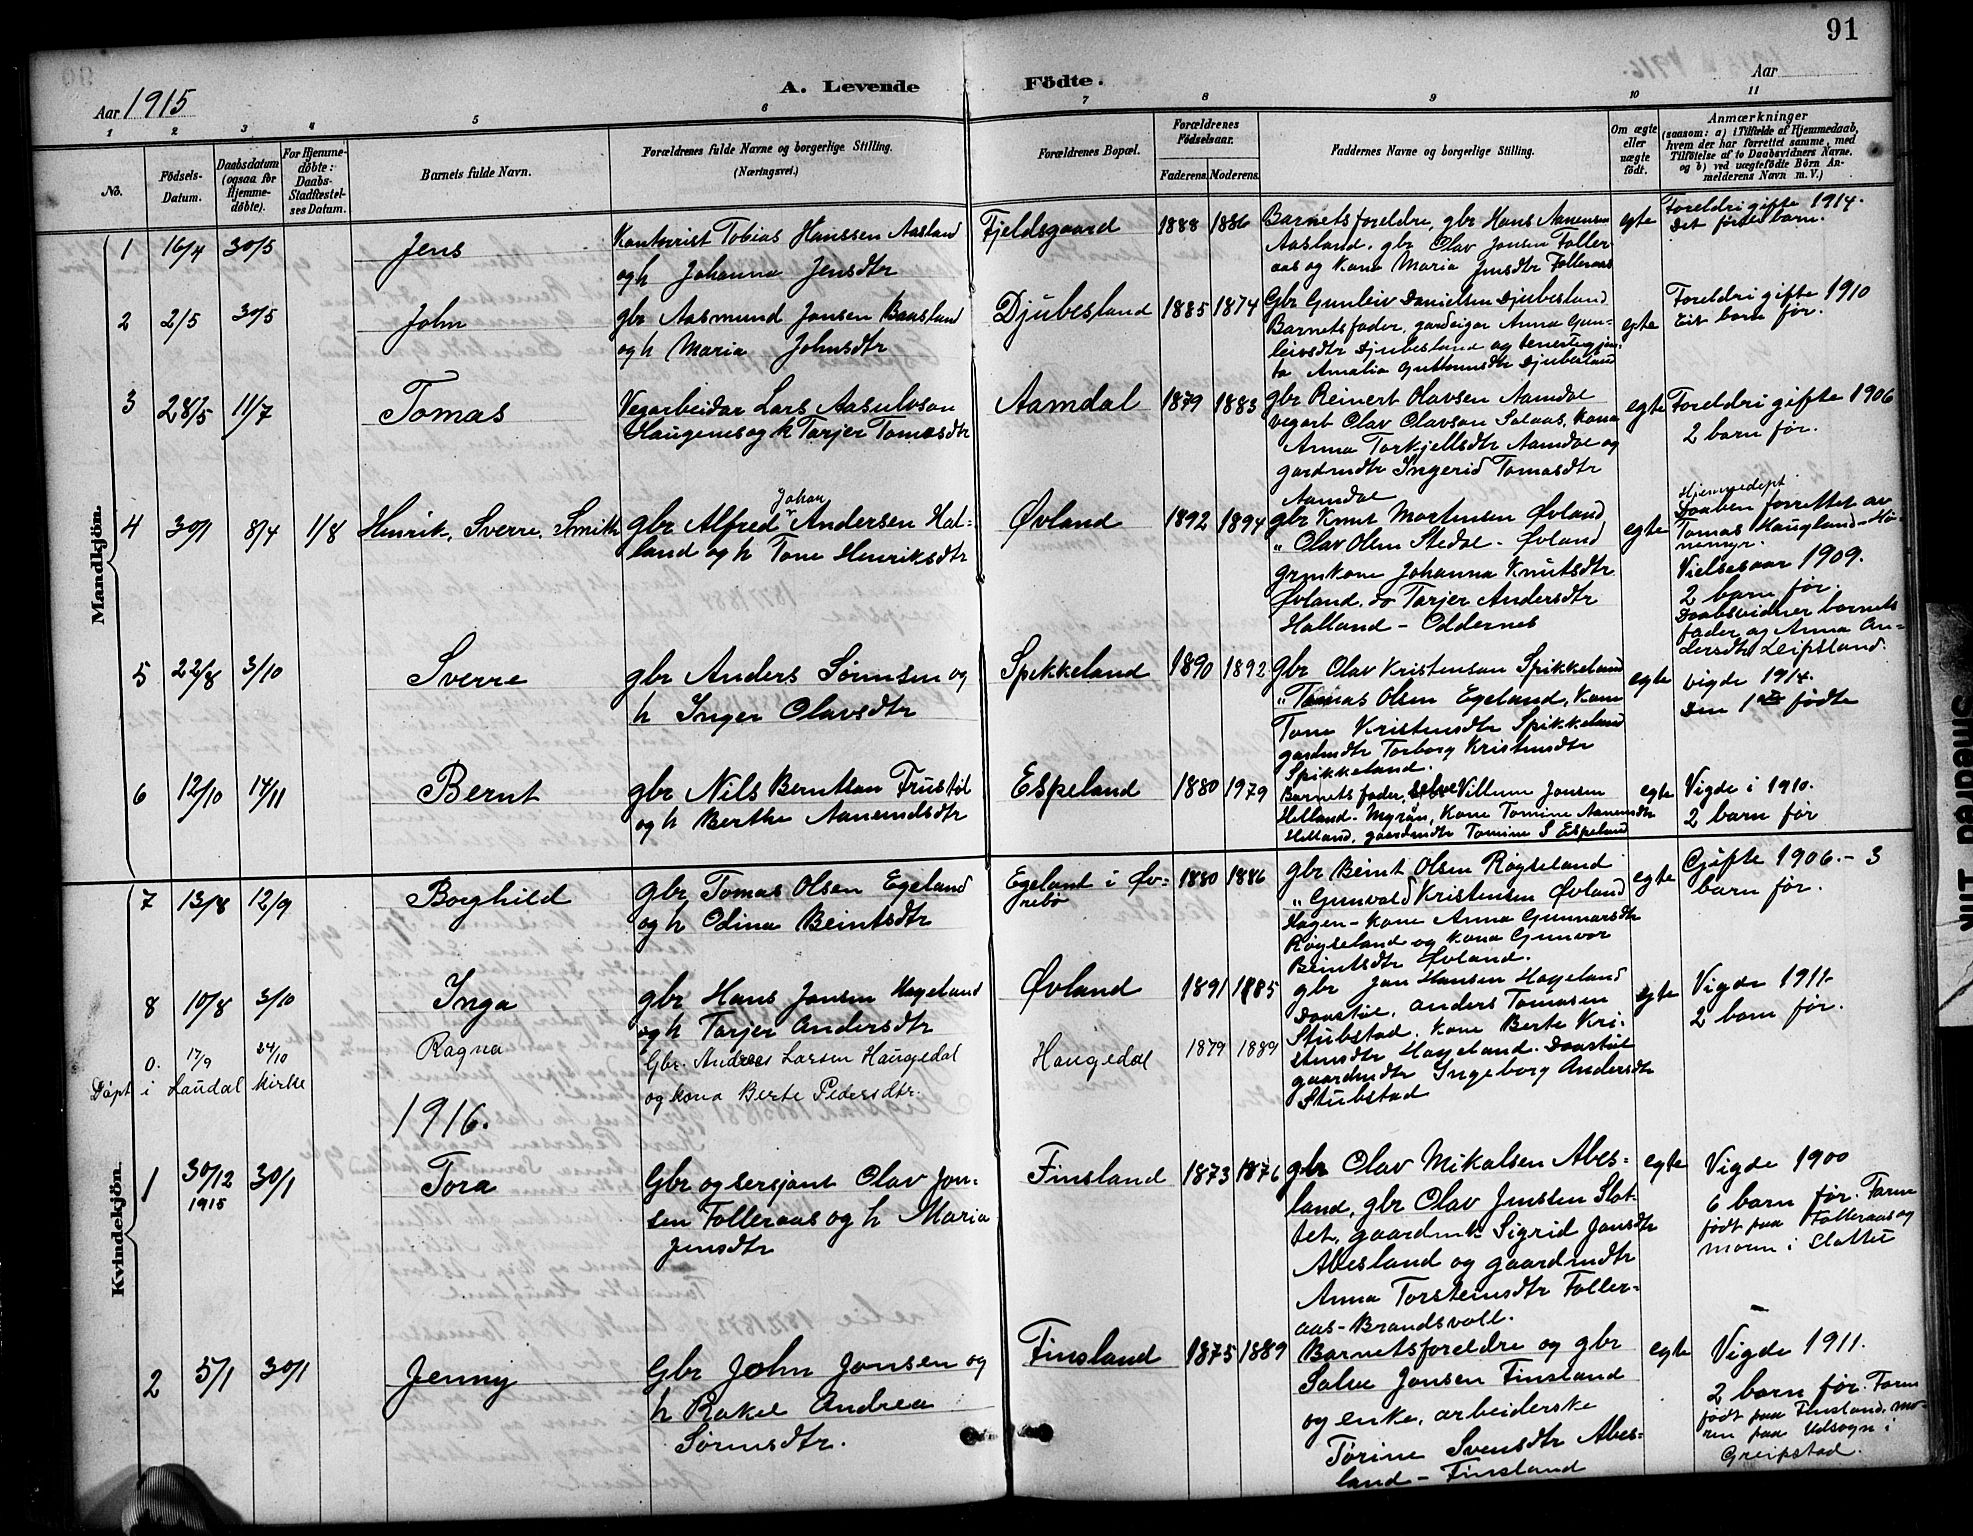 91
Aar 1915
A. Levende Födte.
Aar
1 2 3 4 5 6 7 8 9 10 11
No.
Födsels-
Datum.
Daabsdatum
(ogsaa for
Hjemme-
döbte).
For Hjemme-
döbte:
Daabs-
Stadfæstel-
ses Datum.
Barnets fulde Navn.
Forældrenes fulde Navne og borgerlige Stilling.
(Næringsvei.)
Forældrenes Bopæl.
Forældrenes
Födselsaar.
Faderens. Moderens.
Faddernes Navne og borgerlige Stilling.
Om ægte
eller
uægte
födt.
Anmærkninger
(saasom: a) i Tilfælde af Hjemmedaab,
hvem der har forrettet samme, med
Tilföielse af to Daabsvidners Navne.
og b) ved uægtefödte Börn An-
melderens Navn m. V.)
Mandkjön.
1 16/4 30/5 Jens
Kontorist Tobias Hanssen Aasland
og h Johanna Jensdtr
Fjeldsgaard 1888 1886
Barnets foreldre, gbr Hans Aanensen
Aasland, gbr Olav Jonsen Foller-
aas og Kona Maria Jensdtr Folleraas
egte
Foreldri gifte 1914.
Det første barn.
2 2/5 30/5 John
gbr Aasmund Jonsen Baasland
og h Maria Johnsdtr
Djubesland 1885 1874
Gbr Gunleiv Danielsen Djubesland
Barnets fader, gardeigar Anna Gun-
leivsdtr Djubesland og tenestegjen-
ta Amalia Guttormsdtr Djubesland
egte
Foreldri gifte 1910
Eit barn før.
3 28/5 11/7 Tomas
Vegarbeidar Lars Aasulvson
Haugenes og k Tarjer Tomasdtr
Aamdal 1879 1883
gbr Reinert Olavsen Aamdal
vegarb Olav Olavson Solaas, Kona
Anna Torkjellsdtr Aamdal og
gardmdtr Ingerid Tomasdtr
Aamdal
egte
Foreldri gifte 1906
2 barn før.
4 30/1 8/4 1/8 Henrik, Sverre, Smith
gbr Alfred Johan Andersen Hal-
land og h Tone Henriksdtr
Øvland 1892 1894
gbr Knut Mortensen Øvland
" Olav Olsen Stedal - Øvland
grmkone Johanna Knutsdtr
Øvland, do Tarjer Andersdtr
Halland - Oddernes
egte
Hjemmedøpt
Daaben forrettet av
Tomas Haugland - Hø-
nemyr.
Vielsesaar 1909.
2 barn før.
Daabsvidner barnets
fader og Anna An-
dersdtr Leipsland.
5 22/8 3/10 Sverre
gbr Anders Sørensen og
h Inger Olavsdtr
Spikkeland 1890 1892
gbr Olav Kristensen Spikkeland
" Tomas Olsen Egeland, Kone
Tone Kristensdtr Spikkeland
gardmdtr Torborg Kristensdtr
Spikkeland.
egte
vigde 1914.
Den 1ste fødte
6 12/10 14/11 Bernt
gbr Nils Berntsen Frustøl
og h Berthe Aanensdtr
Espeland 1880 1979
Barnets fader, Villum Jonsen
Helland - Myran, Kone Tomine Aanensdtr
Helland, gaardmdtr Tomine S Espeland
egte
Vigde i 1910.
2 barn før
Kvindekjön.
7 13/8 12/9 Borghild
gbr Tomas Olsen Egeland
og h Odina Beintsdtr
Egeland i Øv-
rebø
1880 1886
gbr Beint Olsen Røyseland
" Gunvald Kristensen Øvland
Hagen - Kone Anna Gunnarsdtr
Røyseland og Kona Gunvor
Beintsdtr Øvland.
egte
Gifte 1906. - 3
barn før.
8 10/8 3/10 Inga
gbr Hans Jonsen Hageland
og h Tarjer Andersdtr
Øvland 1891 1885
gbr Jon Hansen Hageland
Daastøl, Anders Tomasen
Stubstad, Kone Berte Kri-
stensdtr Hageland. Daastøl
gaardmdtr Ingeborg Andersdtr
Stubstad
egte
Vigde 1911.
2 barn før.
0. 17/9 24/10 Ragna
Døpt i Laudal kirke
Gbr. Andreas Larsen Haugedal
og kona Berte Pedersdtr.
Haugedal 1879 1889
1916.
1 30/12 1915 30/1 Tora
Gbr og sersjant Olav Jon-
sen Folleraas og h Maria
Jensdtr
Finsland 1873 1876
gbr Olav Mikalsen Abes-
land, gbr Olav Jenssen Slot-
tet, gaardmk Sigrid Jonsdtr
Abesland og gaardmdtr
Anna Torstensdtr Foller-
aas - Brandsvoll.
egte
Vigde 1900
6 barn før. Faren
født paa Folleraas og
moren i Slottet
2 5/1 30/1 Jenny
Gbr John Jonsen og
h Rakel Andrea
Sørensdtr.
Finsland 1875 1889
Barnets foreldre og gbr
Salve Jonsen Finsland
og enke, arbeiderske
Tørine Svensdtr Abes-
land - Finsland
egte
Vigde 1911.
2 barn før. Faren
født paa Finsland, mo-
ren paa Udsogn i
Greipstad.